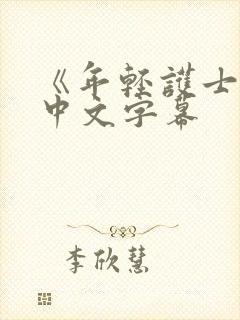 《年輕護士
中文字幕
李欣慧